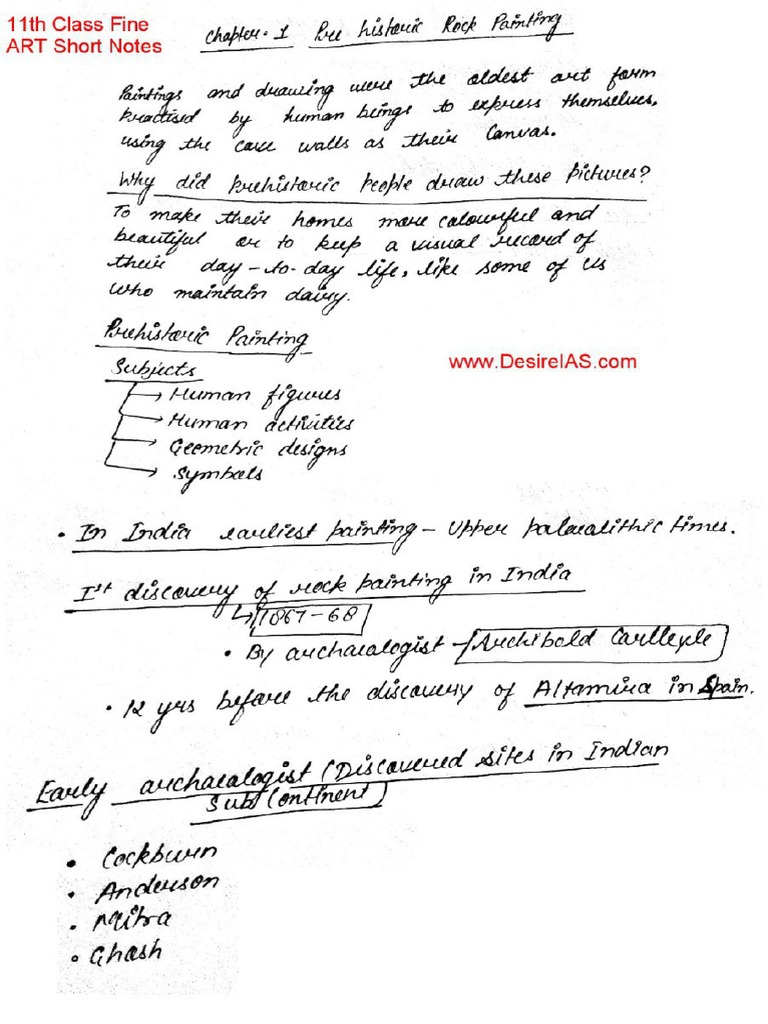 11th Class Fine
ART Short Notes
Chapter-1 Pre historic Rock Painting
Paintings and drawing were the oldest art form
Practised by human beings to express themselves,
using the cave walls as their Canvas.
Why did Prehistoric People draw these Pictures?
To make their homes more colourful and
beautiful or to keep a visual record of
their day-to-day life, like some of us
who maintain dairy.
Prehistoric Painting
www.DesireIAS.com
Subjects
→ Human figures
→ Human activities
→ Geometric designs
→ Symbols
• In India earliest painting – Upper palaeolithic times.
Ist discovery of rock painting in India
↳ 1867-68
• By archaeologist – Archibold Carlleyle
• 12 yrs before the discovery of Altamira in Spain.
Early archaeologist (Discovered sites in Indian
Sub Continent)
• Cockburn
• Anderson
• Mitra
• Ghosh